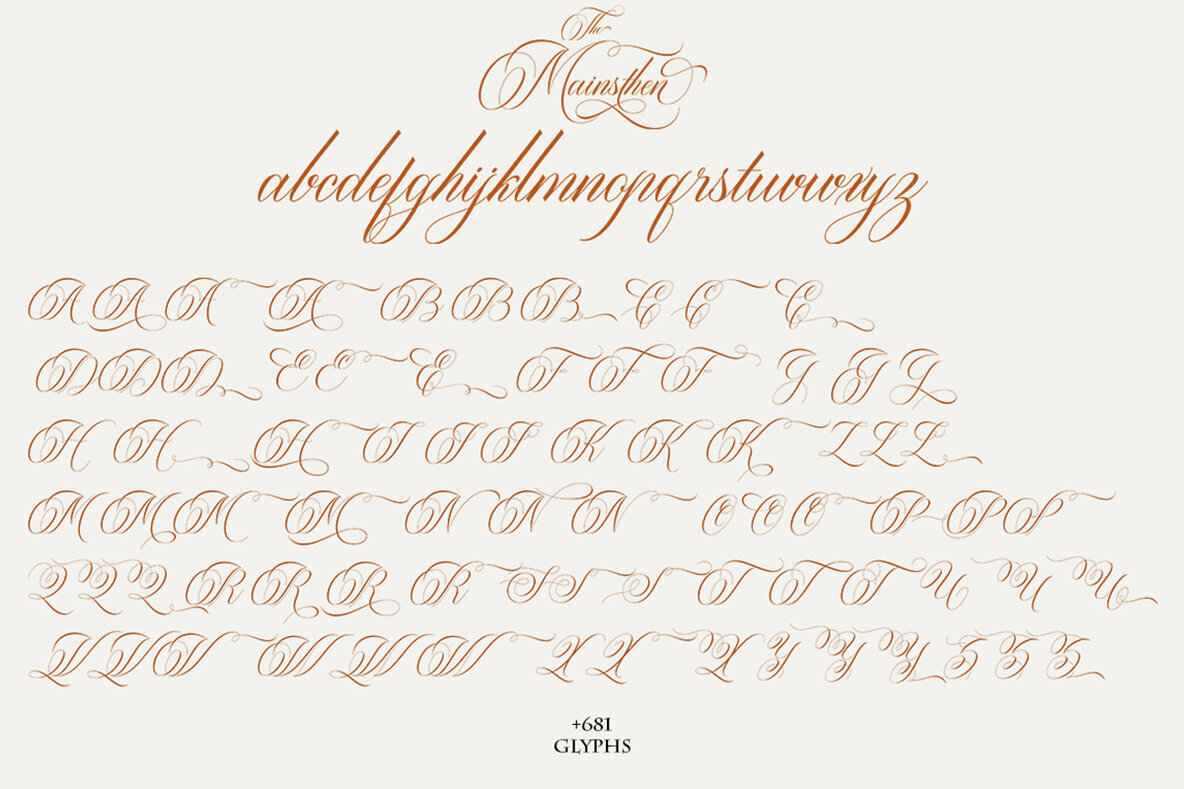 The
Mainsthen
abcdefghijklmnopqrstuvwxyz
A A A A B B B C C C
D D D E E E F F F G G G
H H H I I I K K K L L L
M M M M N N N O O O P P P
Q Q Q R R R R S S S T T T U U U
V V V W W W X X X Y Y Y Z Z Z
+681
GLYPHS